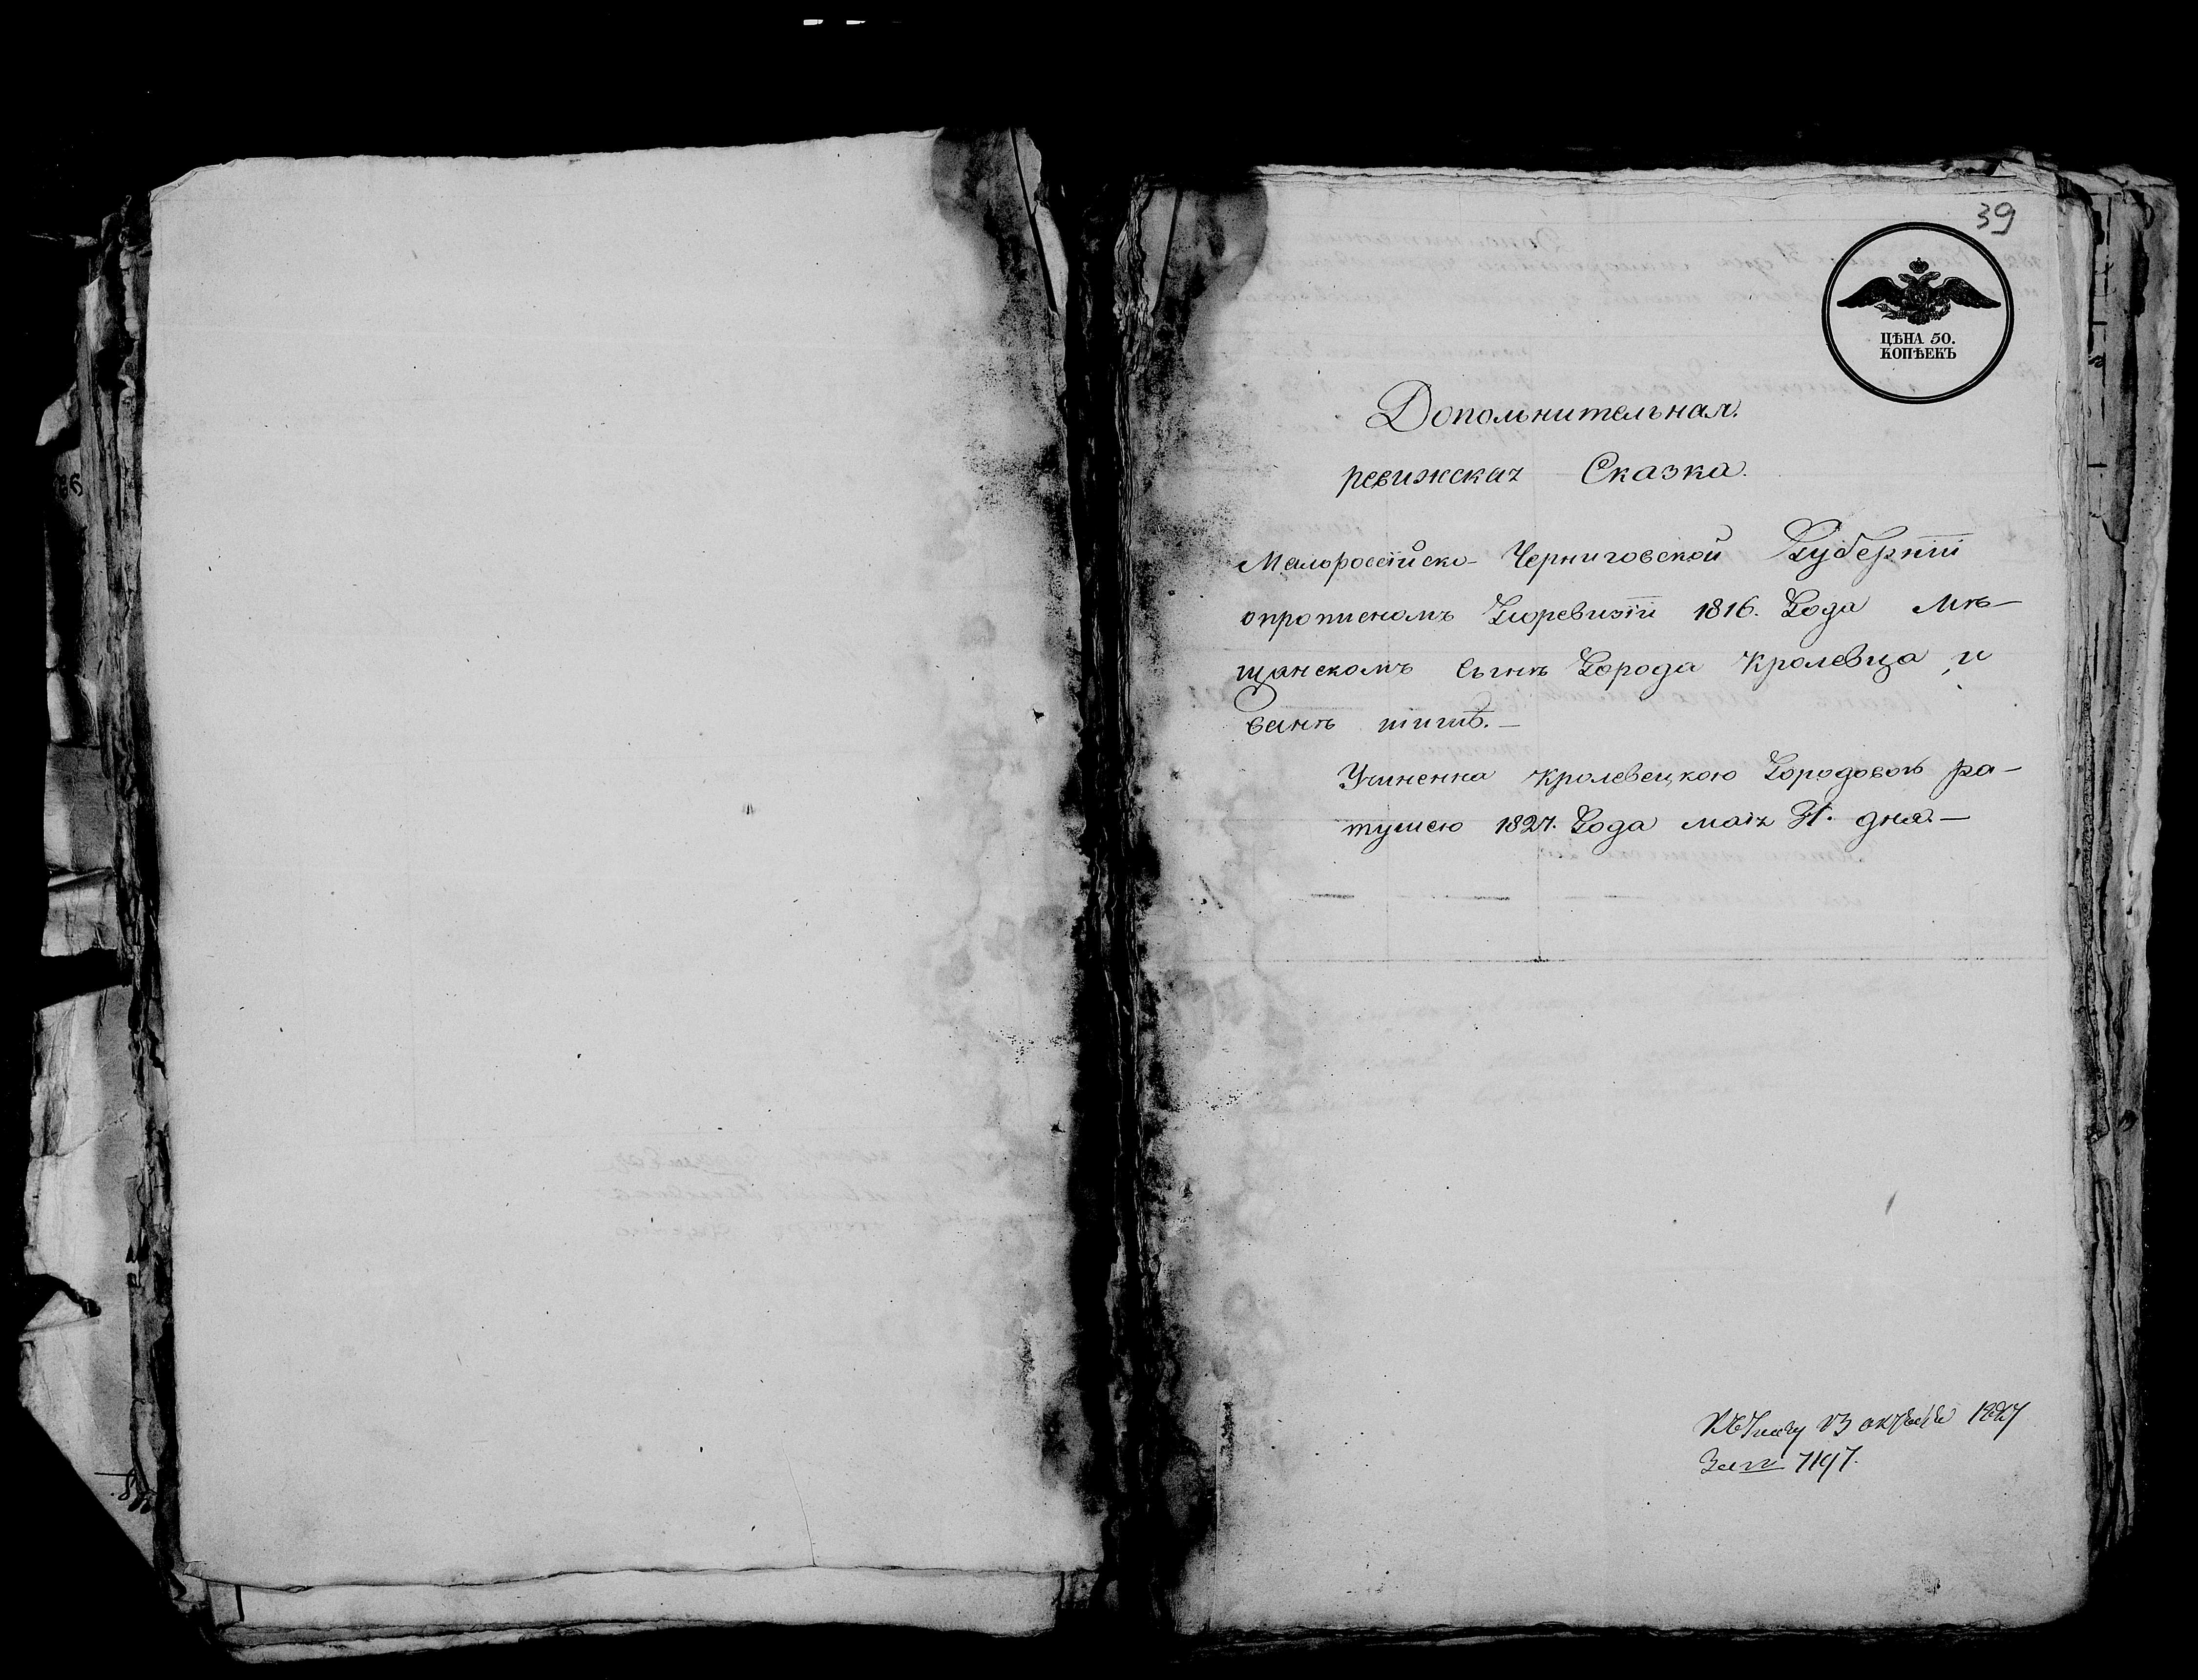 39
ЦѢНА 50.
КОПѢЕКЪ
Дополнительная.
ревижская Сказка.
Малоросѣйско- Черниговской Губернїи
опрописномъ Поревизїи 1816. Года Мѣ-
щанскомъ сынѣ Города Кролевца, и
ванѣ
Учиненна Кролевецкою Городовою ра-
тушею 1827. Года маія 31. дня.-
23 октября 1827
7197.